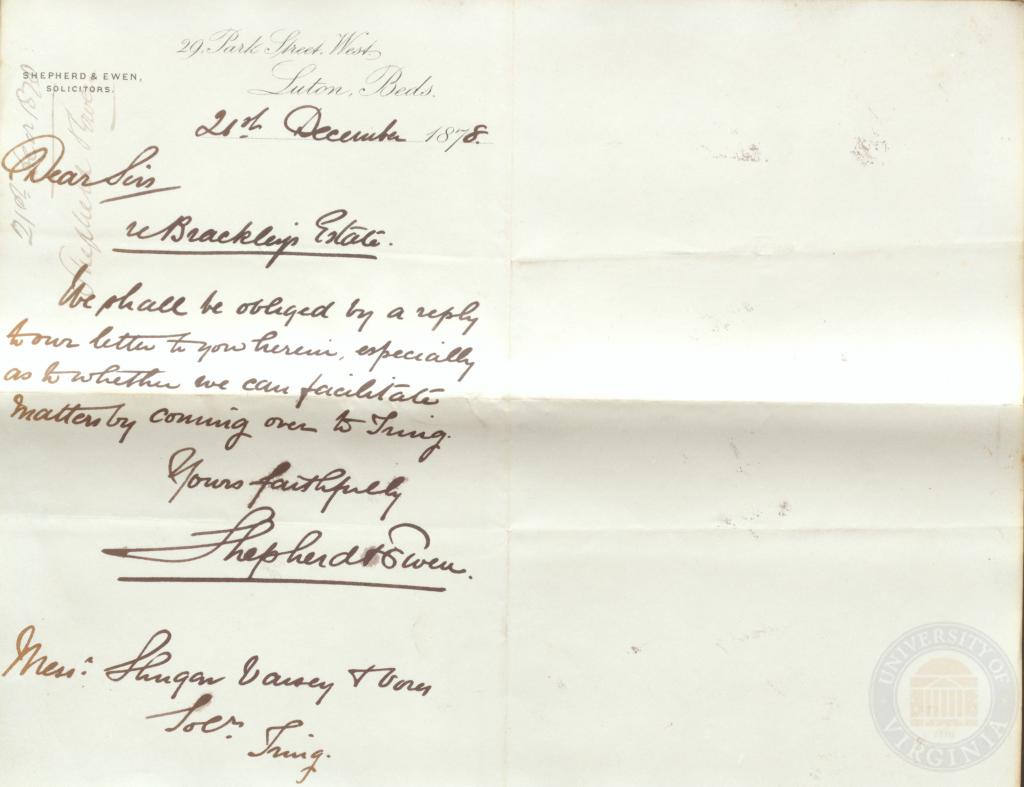 29, Park Street West
Luton, Beds.
SHEPHERD & EWEN,
SOLICITORS.
21st December 1878.
Dear Sirs
re Brackleys Estate.
We shall be obliged by a reply
to our letter to you herein, especially
as to whether we can facilitate
matters by coming over to Tring.
Yours faithfully
Shepherd & Ewen.
Messrs Shugar Vaisey &
Solrs
Tring.
21st 1878
Shepherd & Ewen
UNIVERSITY OF VIRGINIA